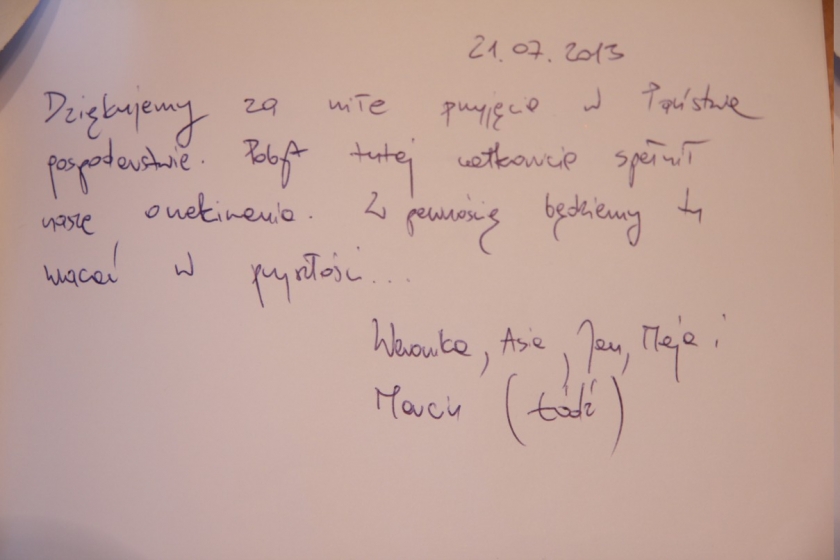 21.07.2013
Dziękujemy za miłe przyjęcie w Państwa
gospodarstwie. Pobyt tutaj całkowicie spełnił
nasze oczekiwania. Z pewnością będziemy tu
wracać w przyszłości...
Weronika, Asia, Jan, Maja i
Marcin (Łódź)